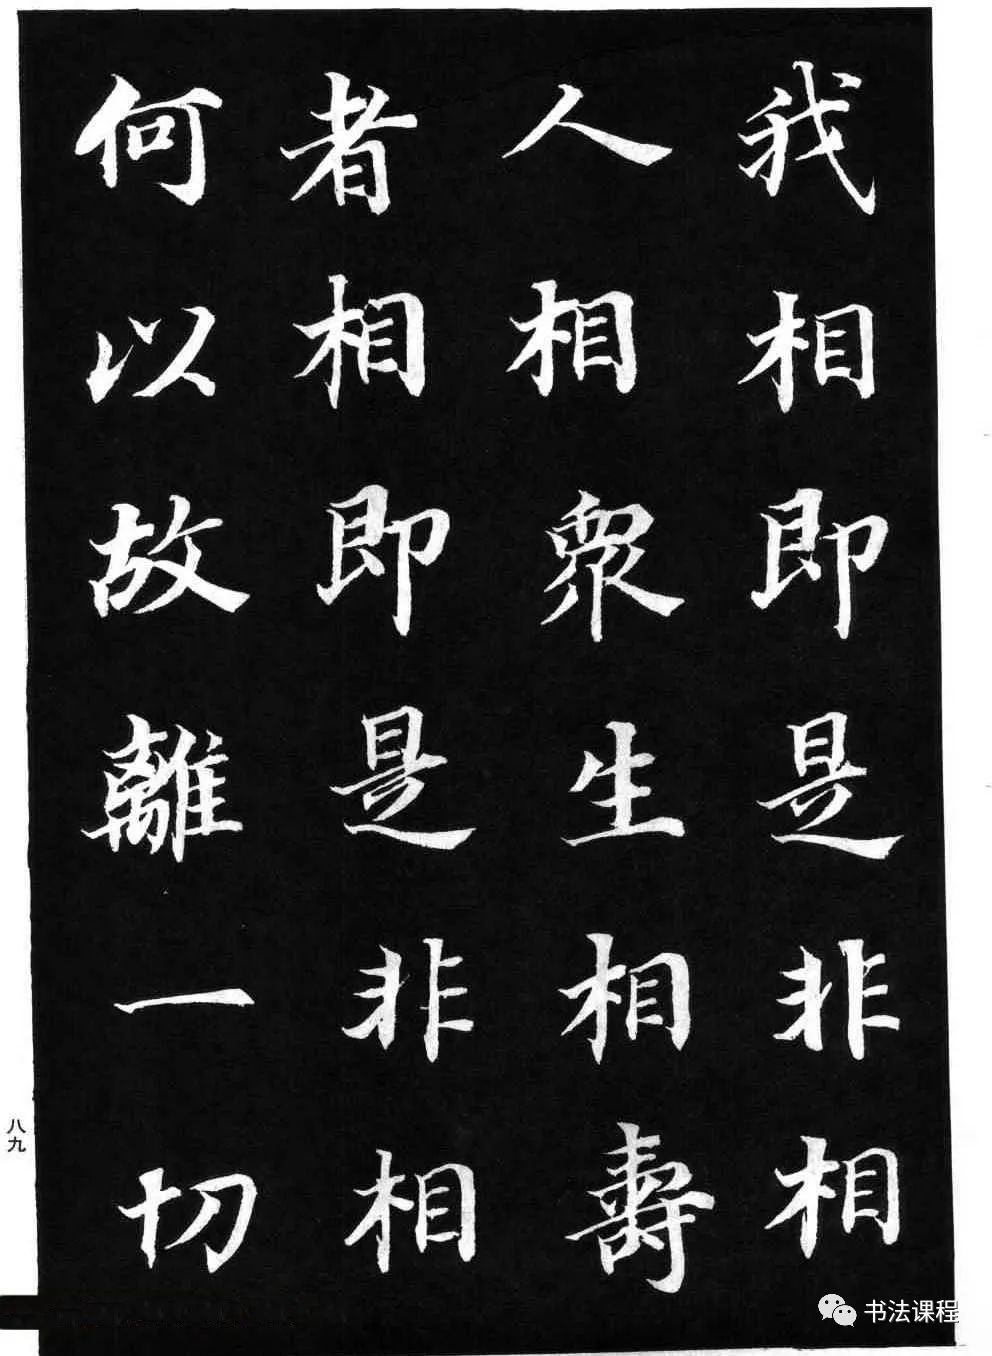 我相即是非相
人相眾生相壽
者相即是非相
何以故離一切
八九
书法课程